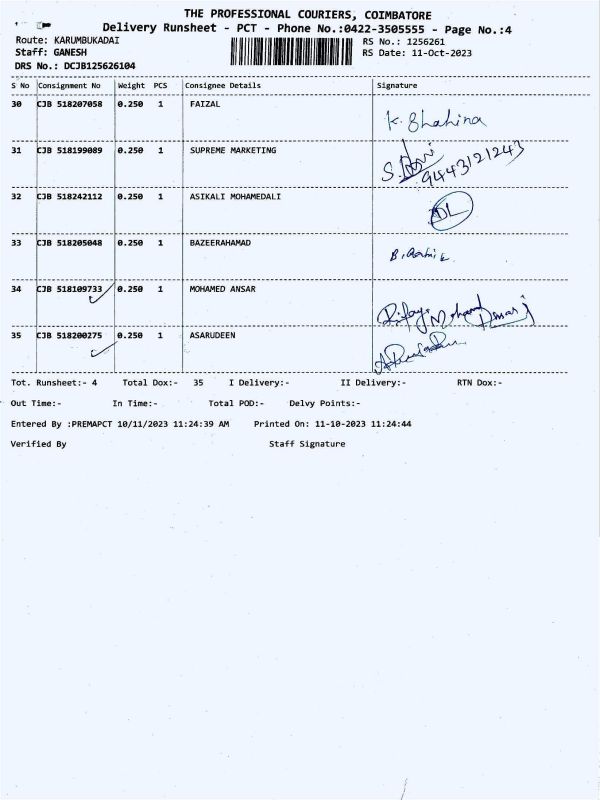 THE PROFESSIONAL COURIERS, COIMBATORE
Delivery Runsheet - PCT - Phone No.:0422-3505555 - Page No.:4
Route: KARUMBUKADAI RS No.: 1256261
Staff: GANESH RS Date: 11-Oct-2023
DRS No.: DCJB125626104
S No Consignment No Weight PCS Consignee Details Signature
30 CJB 518207058 0.250 1 FAIZAL K. Shahina
31 CJB 518199089 0.250 1 SUPREME MARKETING 9443121243
32 CJB 518242112 0.250 1 ASIKALI MOHAMEDALI
33 CJB 518205048 0.250 1 BAZEERAHAMAD
34 CJB 518109733 0.250 1 MOHAMED ANSAR
35 CJB 518200275 0.250 1 ASARUDEEN
Tot. Runsheet:- 4 Total Dox:- 35 I Delivery:- II Delivery:- RTN Dox:-
Out Time:- In Time:- Total POD:- Delvy Points:-
Entered By :PREMAPCT 10/11/2023 11:24:39 AM Printed On: 11-10-2023 11:24:44
Verified By Staff Signature